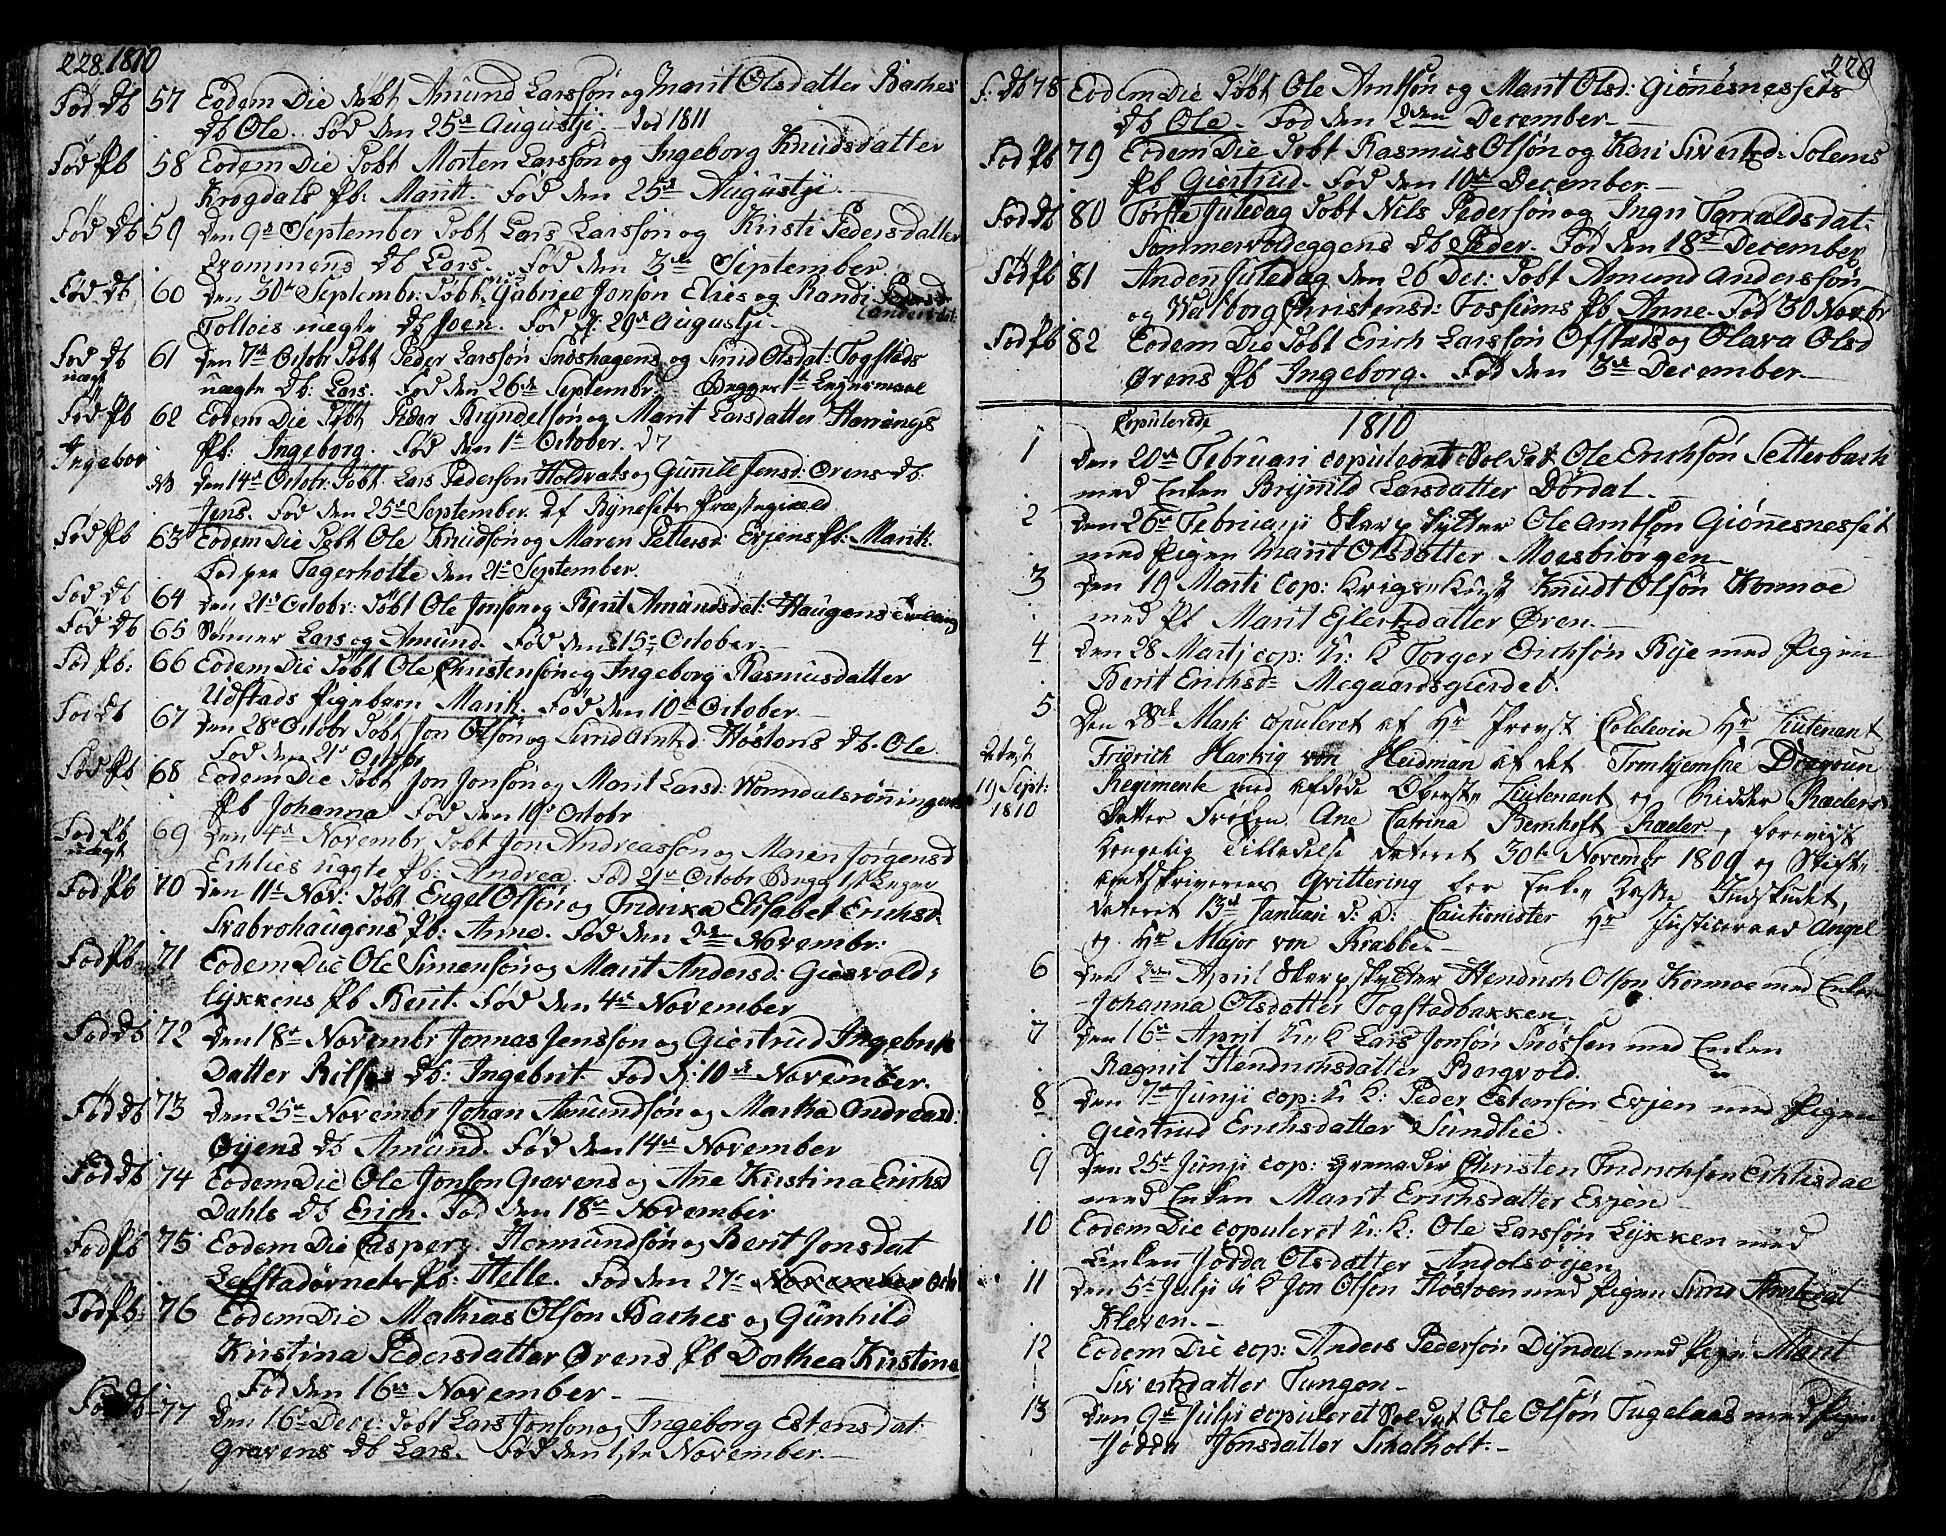 228. 1810
Fød db 57 Eodem Die døbt Amund Larssøn og Marit Olsdatter Baches
db Ole. Fød den 25de Augustji - død 1811
Fød pb 58 Eodem Die Døbt Morten Larssøn og Ingeborg Knudsdatter
Krogdals pb: Marit. Fød den 25de Augustji.
Fød db 59 Den 9de September Døbt Lars Larssøn og Kristi Pedersdatter
Evammens db Lars. Fød den 3de September.
Fød db 60 Den 30te Septembr: Døbt Gabriel Jonsøn Elies og Randi
Andersdat:
Folloies uægte db Joen. Fød d: 29de Augustji.
Fød db 61 Den 7de Octobr Døbt Peder Larssøn Snøshagens og Siird Olsdat: Fogstads
uægt
uægte db: Lars. Fød den 26de Septembr. Begges 1te Leyermaal
Fød pb 62 Eodem Die Døbt Peder Bryndelsøn og Marit Larsdatter Horrings
Ingebor pb: Ingeborg. Fød den 1te October. d 7
db Den 14de Octobr: Døbt Lars Pedersøn Holdvats og Gunnile Jensd: Ørens db:
Jens. Fød den 25de September. Af Bynesets Præstegiæld
Fød pb 63 Eodem Die Døbt Ole Knudsøn og Maren Pettersd: Evjens pb: Marit.
Fød paa Fagerholte den 21de September.
Fød db 64 Den 21de Octobr: Døbt Ole Jonsøn og Berit Amundsdat: Haugens Tvilling
Fød db 65 Sønner Lars og Amund. Fød den 15de October.
Fød pb: 66 Eodem Die Døbt Ole Christensøn og Ingeborg Rasmusdatter
Udstads Pigebarn Marit. Fød den 10de October.
Fød db 67 Den 28de Octobr Døbt Jon Olsøn og Siird Arntsd: Høstons db. Ole.
Fød den 21de Octobr
Fød pb 68 Eodem Die Døbt Jon Jonsøn og Marit Larsd: Wormdalsrønningens
pb Johanna Fød den 19de Octobr
Fød pb 69 Den 4de Novembr Døbt Jon Andreassøn og Maren Jørgensd
uægt
Echlies uægte pb: Andrea. Fød 21de Octobr Begg 1ste Leyer
Fød pb 70 Den 11te Nov: Døbt Engel Olsøn og Fridrica Elisabet Erichsd
Skabrohaugens pb: Anne. Fød den 2den Novembr:
Fød pb 71 Eodem Die Ole Simensøn og Marit Andersd: Giesvold-
lykkens pb Berit. Fød den 4de November
Fød db 72 Den 18de Novembr Jonnas Jenssøn og Giertrud Ingebrits
Datter Rils db: Ingebrit. Fød d: 10de November.
Fød db 73 Den 25de Novembr Johan Amundsøn og Martha Andreasd:
Øyens db Amund. Fød den 14de November
Fød db 74 Eodem Die Ole Jonsøn Gravens og Ane Kirstina Erichsd
Dahls db Erich. Fød den 18de November
Fød pb 75 Eodem Die Casperg Hermundsøn og Berit Jonsdat
Lefstadørnets pb: Helle. Fød den 27de November Octob
Fød pb: 76 Eodem Die Mathias Olsøn Baches og Gunhild
Kirstina Pedersdatter Ørens pb Dorthea Kirstine
Fød den 16de November.
Fød db 77 Den 16de Dec: Døbt Lars Jonsøn og Ingeborg Estensdat:
Gravens db Lars. Fød den 1ste November.
229
F: db 78 Eodem Die Døbt Ole Arntsøn og Marit Olsd: Giønesnessets
db Ole. Fød den 2den December.
Fød pb 79 Eodem Die Døbt Rasmus Olsøn og Kari Sivertsd: Solems
pb Giertrud. Fød den 10de December.
Fød db 80 Første Juledag Døbt Nils Pedersøn og Ingri Taraldsdat:
Sommervoldeggens db Peder. Fød den 18de December
Fød pb 81 Anden Juledag den 26 Dec: Døbt Amund Anderssøn
og Walborg Christensd: Fossums pb Anne. Fød 30 Novbr
Fød pb 82 Eodem Die Døbt Erich Larssøn Ofstads og Olava Olsd
Ørens pb Ingeborg. Fød den 3de December.
Copulerede 1810
1 Den 20de Februari copuleret Soldat Ole Erichsøn Setterbach
med Enken Brynnild Larsdatter Dørdal.
2 Den 26de Februarji Skarpskytter Ole Arntsøn Giønnesnesset
med Pigen Marit Olsdatter Moesbiørgen
3 Den 19 Marti cop: Knudt Olsøn Konmoe
med pb Marit Ejlertsdatter Øren.
4 Den 28 Martj cop: u: k Torger Erichsøn Rye med Pigen
Berit Erichsd: Megaardsgierdet.
5 Den 28de Marti copuleret af Hr Provst Coldevin Hr Lieutenant
attest
19 Sept:
1810
Fridrich Hartvig von Heidman af det Trondhjemske Dragoun
Regimente med afdøde Øberste Lieutenant og Ridder Ræders
Datter Frøken Ane Catrina Bernhoft Ræder, foreviist
Kongelig Tilladelse dateret 30te Novembr 1809 og Stift-
amtskriverens Qvittering for Enke Kasse Indskudet,
dateret 13de Januari d: A: Cautionister Hr Justiceraad Angel
og Hr Major von Krabbe.
6 Den 2den April Skarpskytter Hendrich Olsøn Konmoe med Enken
Johanna Olsdatter Fogstadbakken.
7 Den 16de April U: K Lars Jonsøn Snøssen med Enken
Ragnil Hendrichsdatter Bergvold.
8 Den 7de Junji cop: U: K: Peder Estensøn Evjen med Pigen
Giertrud Erichsdatter Sundlie.
9 Den 25de Junji cop: Grenader Christen Indrichsøn Echlisdal
med Enken Marit Erichsdatter Evjen
10 Eodem Die copuleret U: K: Ole Larssøn Lykken med
Enken Jødda Olsdatter Andolsøyen
11 Den 5te Julji U K Jon Olsøn Høstoen med Pigen Siird Arntsdat
Kleven.
12 Eodem Die cop: Anders Pedersøn Disndal med Pigen Marit
Sivertsdatter Tungen.
13 Den 9de Julji copuleret Soldat Ole Olsøn Fugelaas med Pigen
Jødda Jonsdatter Skalholt.